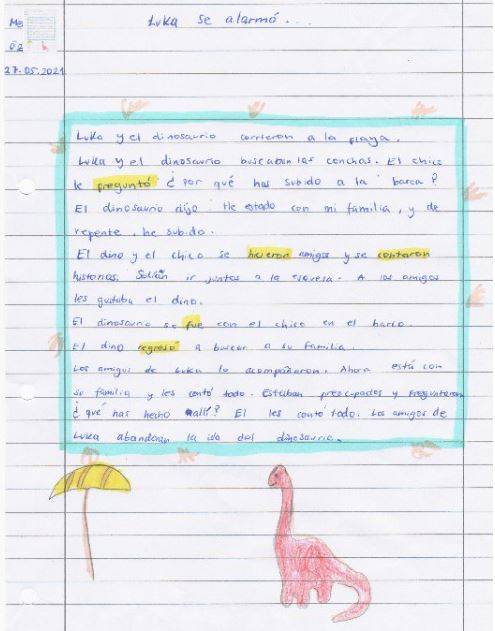 Luka se alarmó...
Me
6a
27.05.2021
Luka y el dinosaurio corrieron a la playa.
Luka y el dinosaurio buscaban las conchas. El chico
le preguntó ¿Por qué has subido a la barca?
El dinosaurio dijo: He estado con mi familia, y de
repente, he subido.
El dino y el chico se hicieron amigos y se contaron
historias. Solían ir juntos a la escuela. A los amigos
les gustaba el dino.
El dinosaurio se fue con el chico en el barco.
El dino regresó a buscar a su familia.
Los amigos de Luka lo acompañaron. Ahora está con
su familia y les contó todo. Estaban preocupados y preguntaron
¿qué has hecho allí? El les contó todo. Los amigos de
Luka abandonan la isla del dinosaurio.